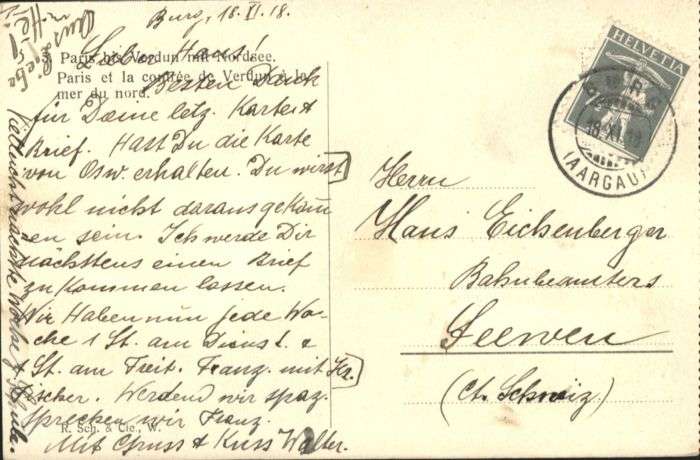 Burg, 18. XI. 18.
Lieber Hans!
3. Paris bis Verdun mit Nordsee.
Paris et la contrée de Verdun à la
mer du nord.
Besten Dank
für Deine letz. Karte &
Brief. Hast Du die Karte
von Osw. erhalten. Du wirst
wohl nicht daraus gekom
men sein. Ich werde Dir
nächstens einen Brief
zu kommen lassen.
Wir Haben nun jede Wo-
che 1 St. am Dienst. &
St. am Freit. Franz. mit Hr.
Fischer. Werdend wir spaz.
sprechen wir Franz.
Mit Gruss & Kuss Walter.
R. Sch. & Cie., W.
HELVETIA
BURG
18. XI. 18
(AARGAU)
Herrn
Hans Eichenberger
Bahnbeamters
Seewen
(Ct. Schwiz)